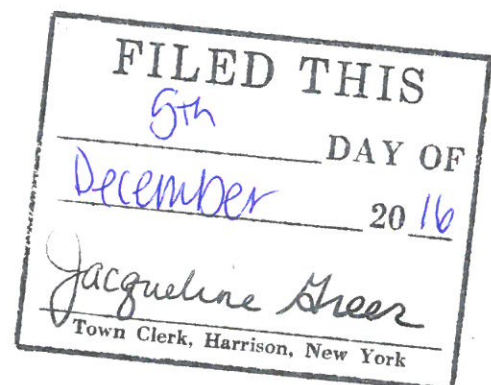 FILED THIS
5th
DAY OF
December 20 16
Jacqueline Greer
Town Clerk, Harrison, New York